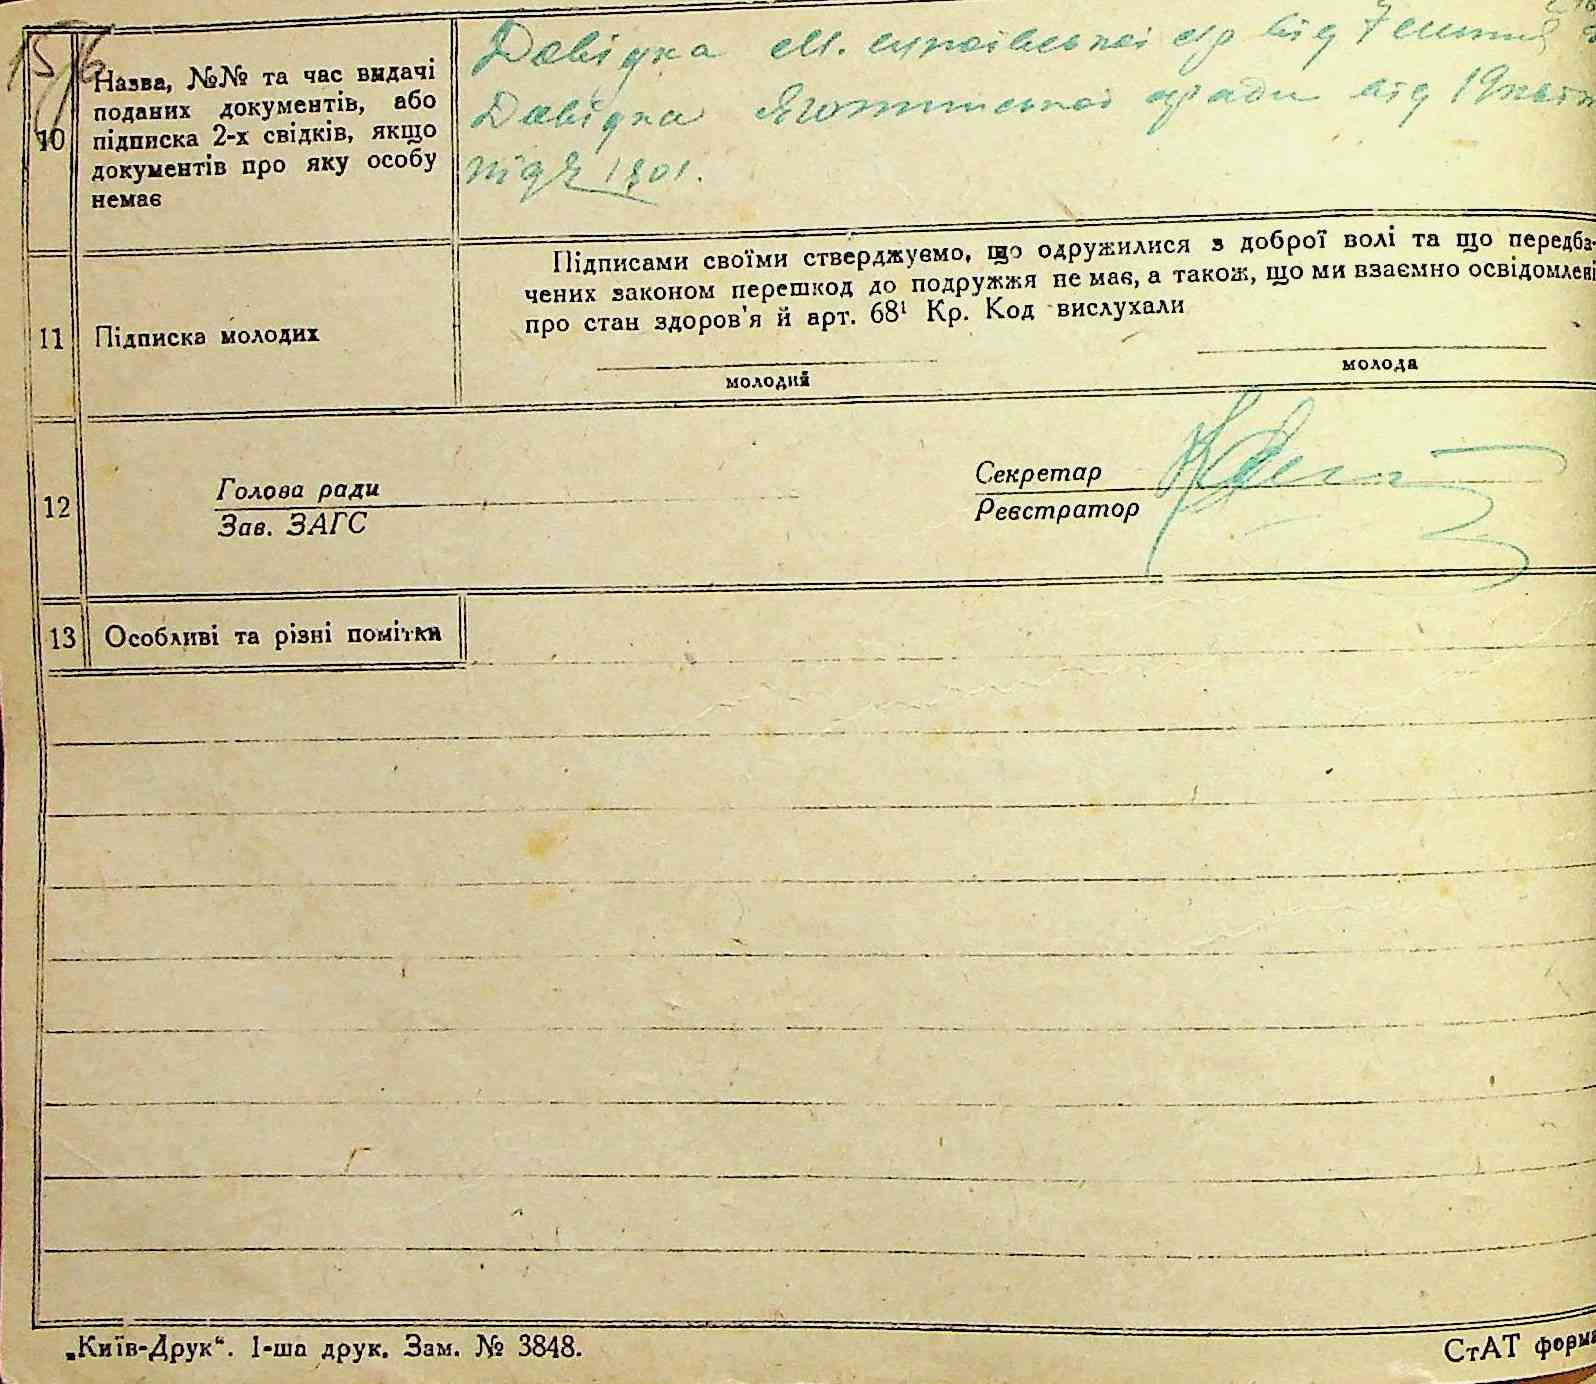 15/6
10
Назва, №№ та час видачі
поданих документів, або
підписка 2-х свідків, якщо
документів про яку особу
немає
Довідка М. супоївської ср від 7
Довідка Яготинської ради від 19
під № 1301.
11
Підписка молодих
Підписами своїми стверджуємо, що одружилися з доброї волі та що передба-
чених законом перешкод до подружжя не має, а також, що ми взаємно освідомлені
про стан здоров'я й арт. 68¹ Кр. Код вислухали
молодий
молода
12
Голова ради
Зав. ЗАГС
Секретар
Реєстратор
13
Особливі та різні помітки
„Київ-Друк“. 1-ша друк. Зам. № 3848.
СтАТ форма